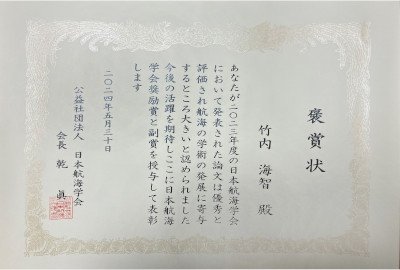 褒賞状
竹内 海智 殿
あなたが二〇二三年度の日本航海学会
において発表された論文は優秀と
評価され航海の学術の発展に寄与
するところ大きいと認められました
今後の活躍を期待しここに日本航海
学会奨励賞と副賞を授与して表彰
します
二〇二四年五月三十日
公益社団法人 日本航海学会
会長 乾 眞